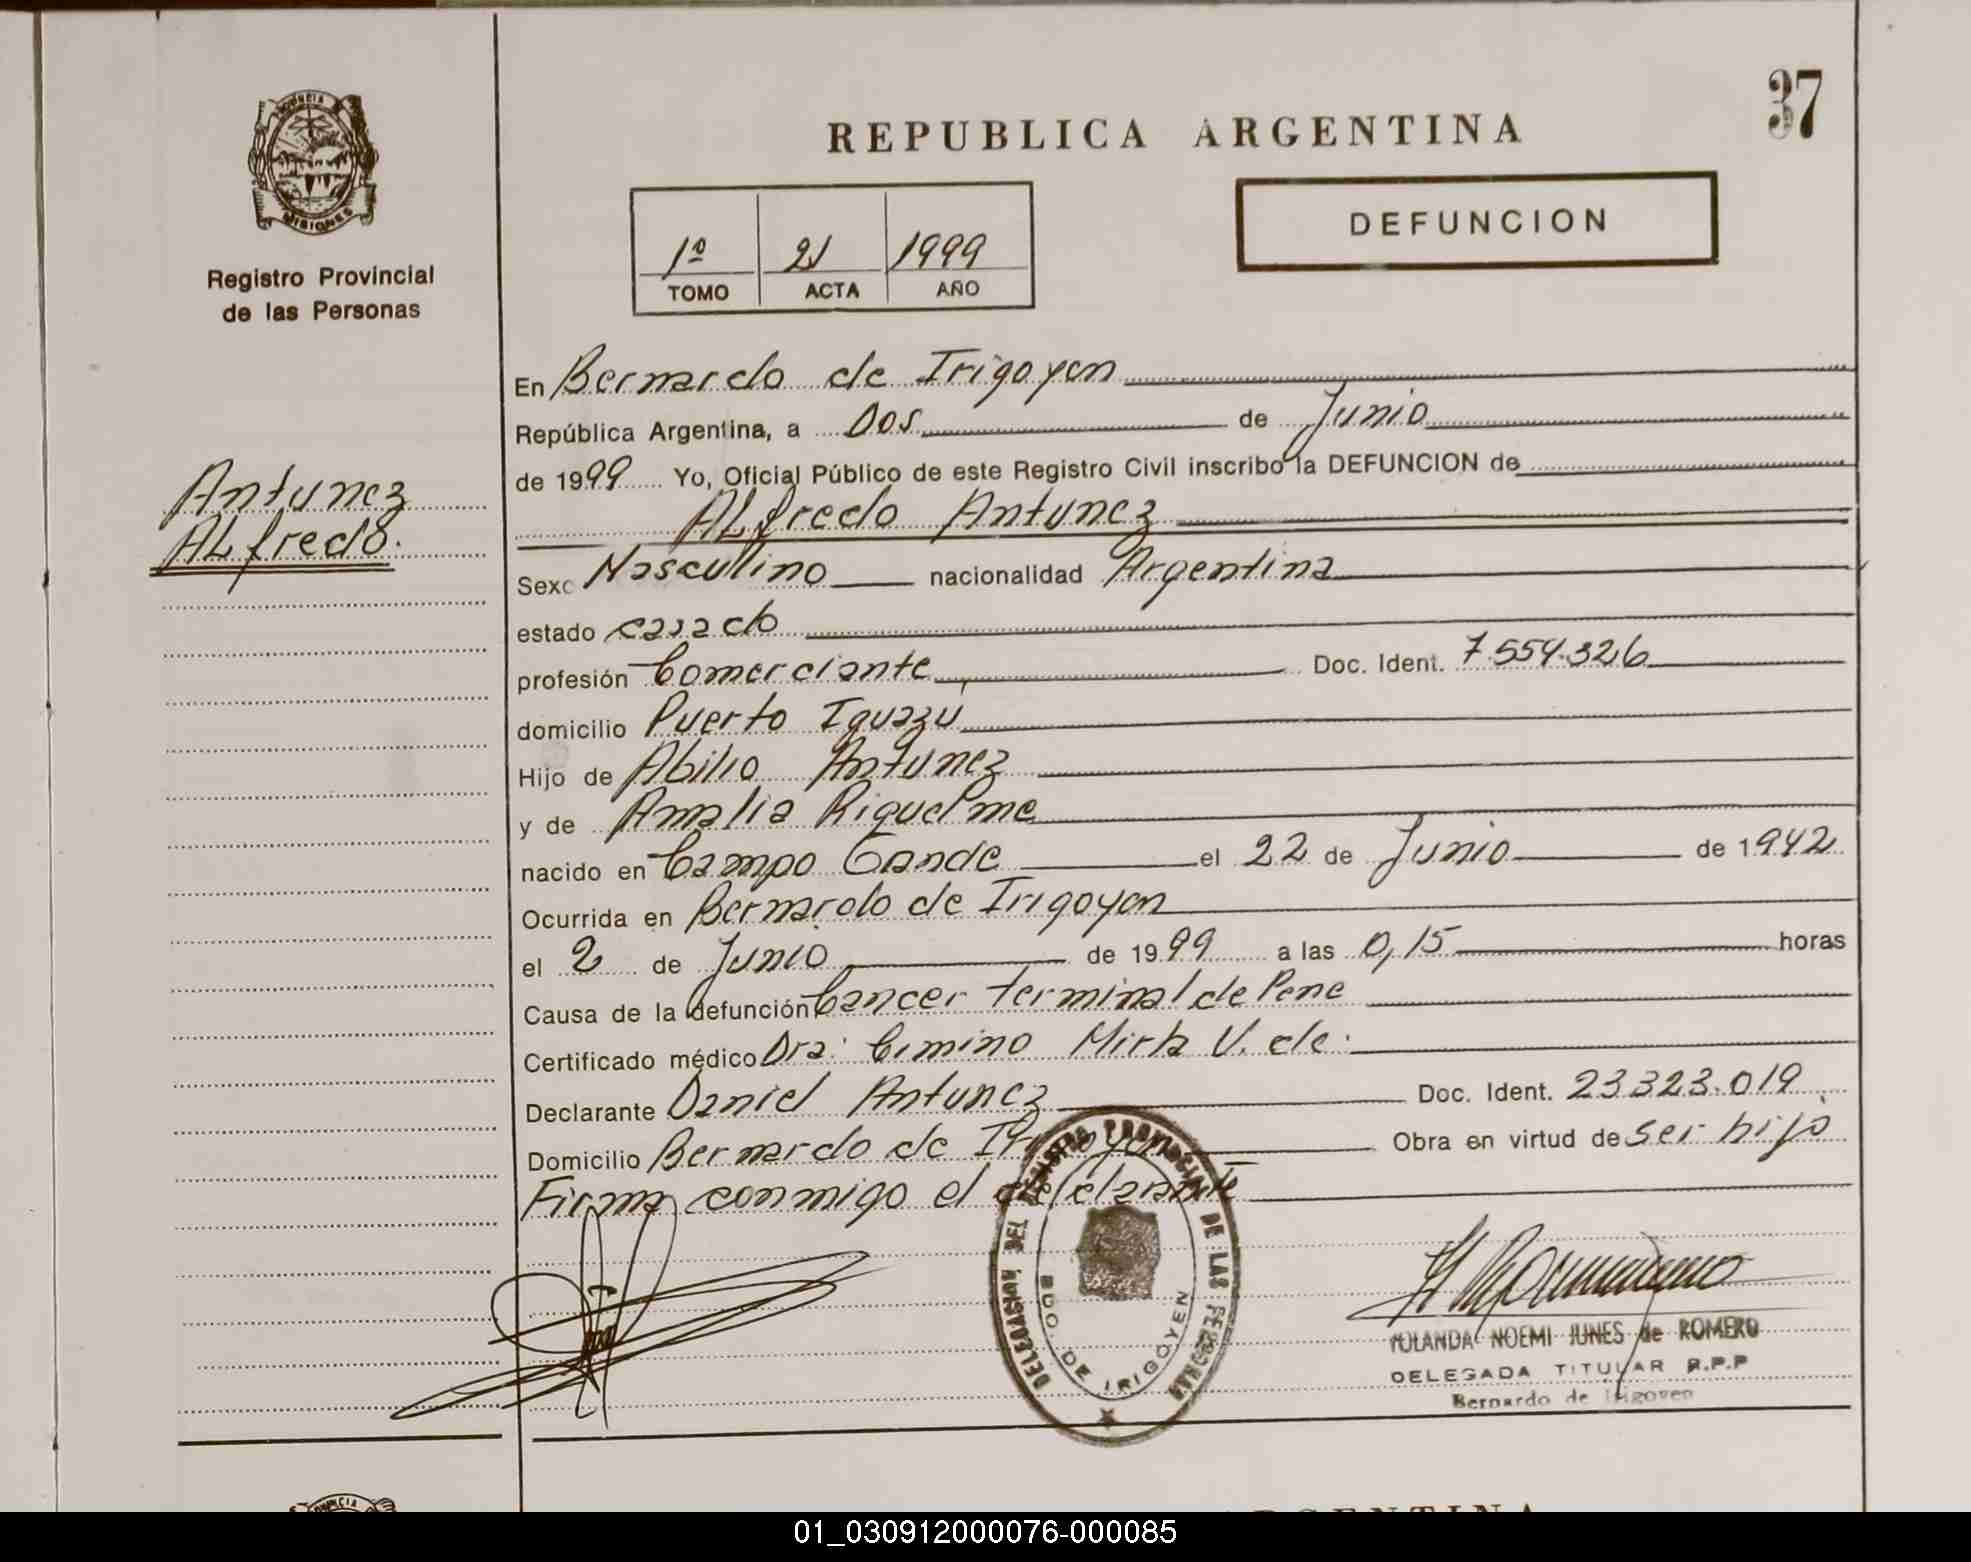 37
REPUBLICA ARGENTINA
PROVINCIA
MISIONES
Registro Provincial
de las Personas
DEFUNCION
1º 21 1999
TOMO ACTA AÑO
En Bernardo de Irigoyen
República Argentina, a Dos de Junio
de 1999 Yo, Oficial Público de este Registro Civil inscribo la DEFUNCION de
Antunez
ALfredo.
ALfredo Antunez
Sexo Masculino nacionalidad Argentina
estado casado
profesión Comerciante Doc. Ident. 7.554.326
domicilio Puerto Iguazú
Hijo de Abilio Antunez
y de Amalia Riquelme
nacido en Campo Grande el 22 de Junio de 1942
Ocurrida en Bernardo de Irigoyen
el 2 de Junio de 1999 a las 0,15 horas
Causa de la defunción Cancer terminal de Pene
Certificado médico Dra: Cimino Mirta V. de.
Declarante Daniel Antunez Doc. Ident. 23.323.019
Domicilio Bernardo de Irigoyen Obra en virtud de ser hijo
Firma conmigo el declarante
DELEGACION DEL REGISTRO PROVINCIAL DE LAS PERSONAS
BDO. DE IRIGOYEN
YOLANDA NOEMI JUNES de ROMERO
DELEGADA TITULAR R.P.P
Bernardo de Irigoyen
ARGENTINA
01_030912000076-000085